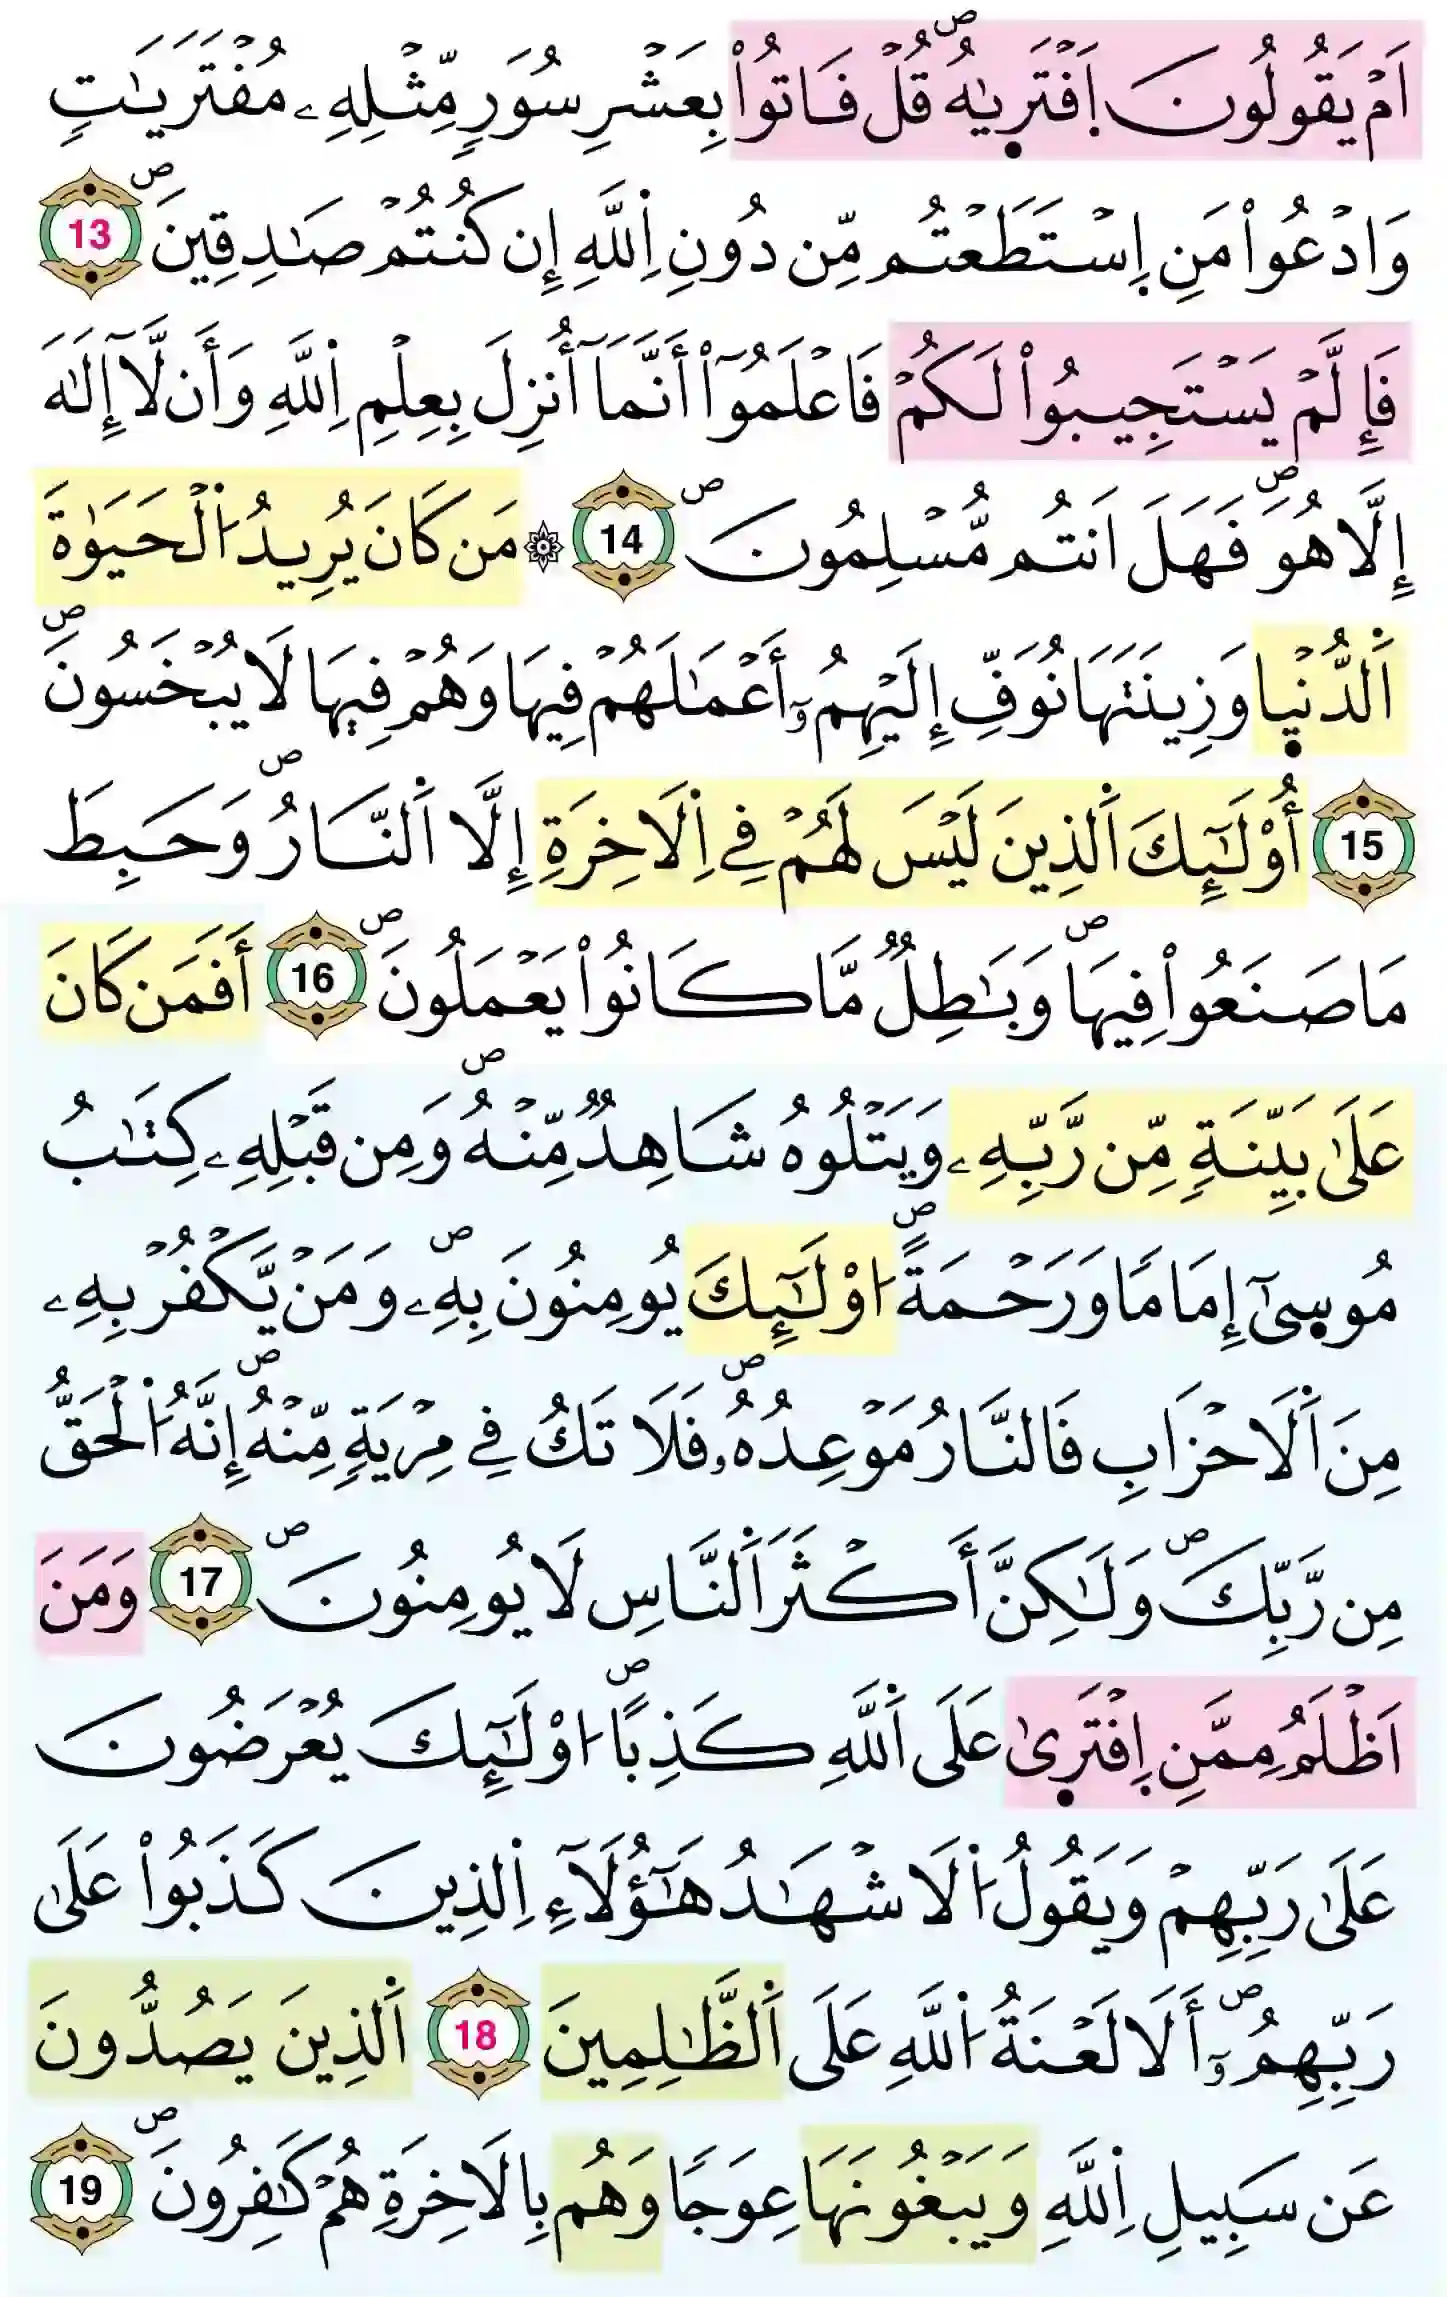 اَمْ يَقُولُونَ اَ۪فْتَر۪يٰهُۖ قُلْ فَاتُواْ بِعَشْرِ سُوَرٖ مِّثْلِهِۦ مُفْتَرَيَٰتٖ
وَادْعُواْ مَنِ اِ۪سْتَطَعْتُم مِّن دُونِ اِ۬للَّهِ إِن كُنتُمْ صَٰدِقِينَۖ 13
فَإِلَّمْ يَسْتَجِيبُواْ لَكُمْ فَاعْلَمُوٓاْ أَنَّمَآ أُنزِلَ بِعِلْمِ اِ۬للَّهِ وَأَن لَّآ إِلَٰهَ
إِلَّا هُوَۖ فَهَلَ اَنتُم مُّسْلِمُونَۖ 14 ۞ مَن كَانَ يُرِيدُ اُ۬لْحَيَوٰةَ
اَ۬لدُّنْي۪ا وَزِينَتَهَا نُوَفِّ إِلَيْهِمُۥٓ أَعْمَٰلَهُمْ فِيهَا وَهُمْ فِيهَا لَا يُبْخَسُونَۖ
15 أُوْلَٰٓئِكَ اَ۬لذِينَ لَيْسَ لَهُمْ فِے اِ۬لَاخِرَةِ إِلَّا اَ۬لنَّارُۖ وَحَبِطَ
مَا صَنَعُواْ فِيهَاۖ وَبَٰطِلٞ مَّا كَانُواْ يَعْمَلُونَۖ 16 أَفَمَن كَانَ
عَلَىٰ بَيِّنَةٖ مِّن رَّبِّهِۦ وَيَتْلُوهُ شَاهِدٞ مِّنْهُۖ وَمِن قَبْلِهِۦ كِتَٰبُ
مُوس۪ىٰٓ إِمَامًا وَرَحْمَةًۖ اُوْلَٰٓئِكَ يُومِنُونَ بِهِۦۖ وَمَنْ يَّكْفُرْ بِهِۦ
مِنَ اَ۬لَاحْزَابِ فَالنَّارُ مَوْعِدُهُۥۖ فَلَا تَكُ فِے مِرْيَةٖ مِّنْهُۖ إِنَّهُ اُ۬لْحَقُّ
مِن رَّبِّكَۖ وَلَٰكِنَّ أَكْثَرَ اَ۬لنَّاسِ لَا يُومِنُونَۖ 17 وَمَنَ
اَظْلَمُ مِمَّنِ اِ۪فْتَر۪ىٰ عَلَى اَ۬للَّهِ كَذِباًۖ اُوْلَٰٓئِكَ يُعْرَضُونَ
عَلَىٰ رَبِّهِمْ وَيَقُولُ اُ۬لَاشْهَٰدُ هَٰٓؤُلَآءِ اِ۬لذِينَ كَذَبُواْ عَلَىٰ
رَبِّهِمُۥٓۖ أَلَا لَعْنَةُ اُ۬للَّهِ عَلَى اَ۬لظَّٰلِمِينَ 18 اَ۬لذِينَ يَصُدُّونَ
عَن سَبِيلِ اِ۬للَّهِ وَيَبْغُونَهَا عِوَجًا وَهُم بِالَاخِرَةِ هُمْ كَٰفِرُونَۖ 19